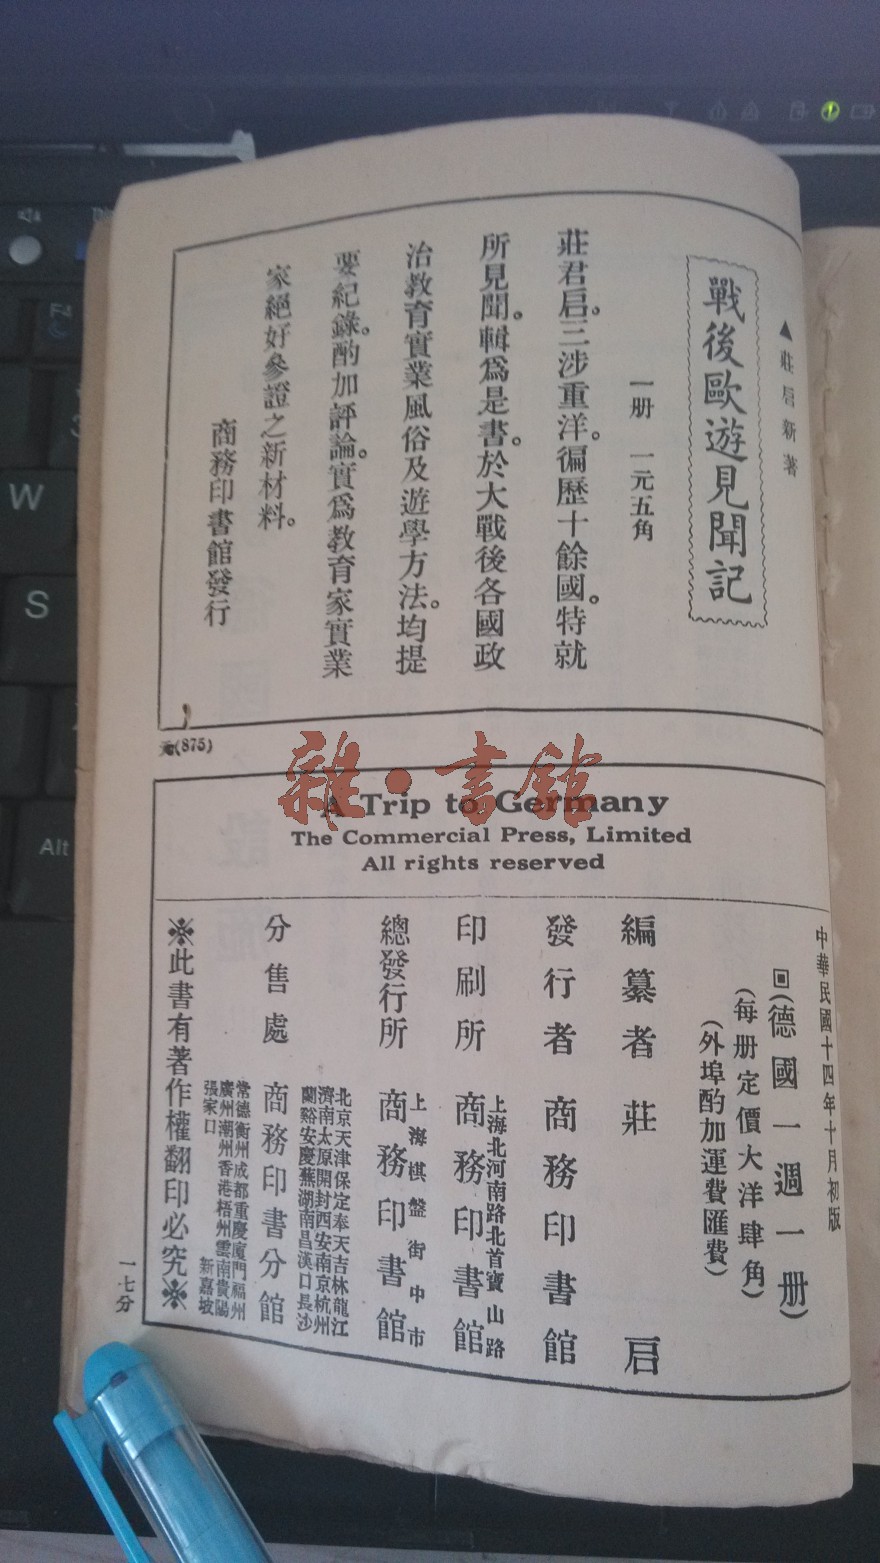 ▲莊启新著
戰後歐遊見聞記
一册 一元五角
莊君启。三涉重洋。徧歷十餘國。特就
所見聞。輯爲是書。於大戰後各國政
治教育實業風俗及遊學方法。均提
要紀錄。酌加評論。實爲教育家實業
家絕好參證之新材料。
商務印書館發行
(875)
雜·書館
A Trip to Germany
The Commercial Press, Limited
All rights reserved
中華民國十四年十月初版
回(德國一週一册)
(每册定價大洋肆角)
(外埠酌加運費匯費)
編纂者 莊启
發行者 商務印書館
印刷所 上海北河南路北首寶山路 商務印書館
總發行所 上海棋盤街中市 商務印書館
分售處 商務印書分館
北京天津保定奉天吉林龍江
濟南太原開封西安南京杭州
蘭谿安慶蕪湖南昌漢口長沙
常德衡州成都重慶廈門福州
廣州潮州香港梧州雲南貴陽
張家口 新嘉坡
※此書有著作權翻印必究※
一七分
W
S
Alt
F4